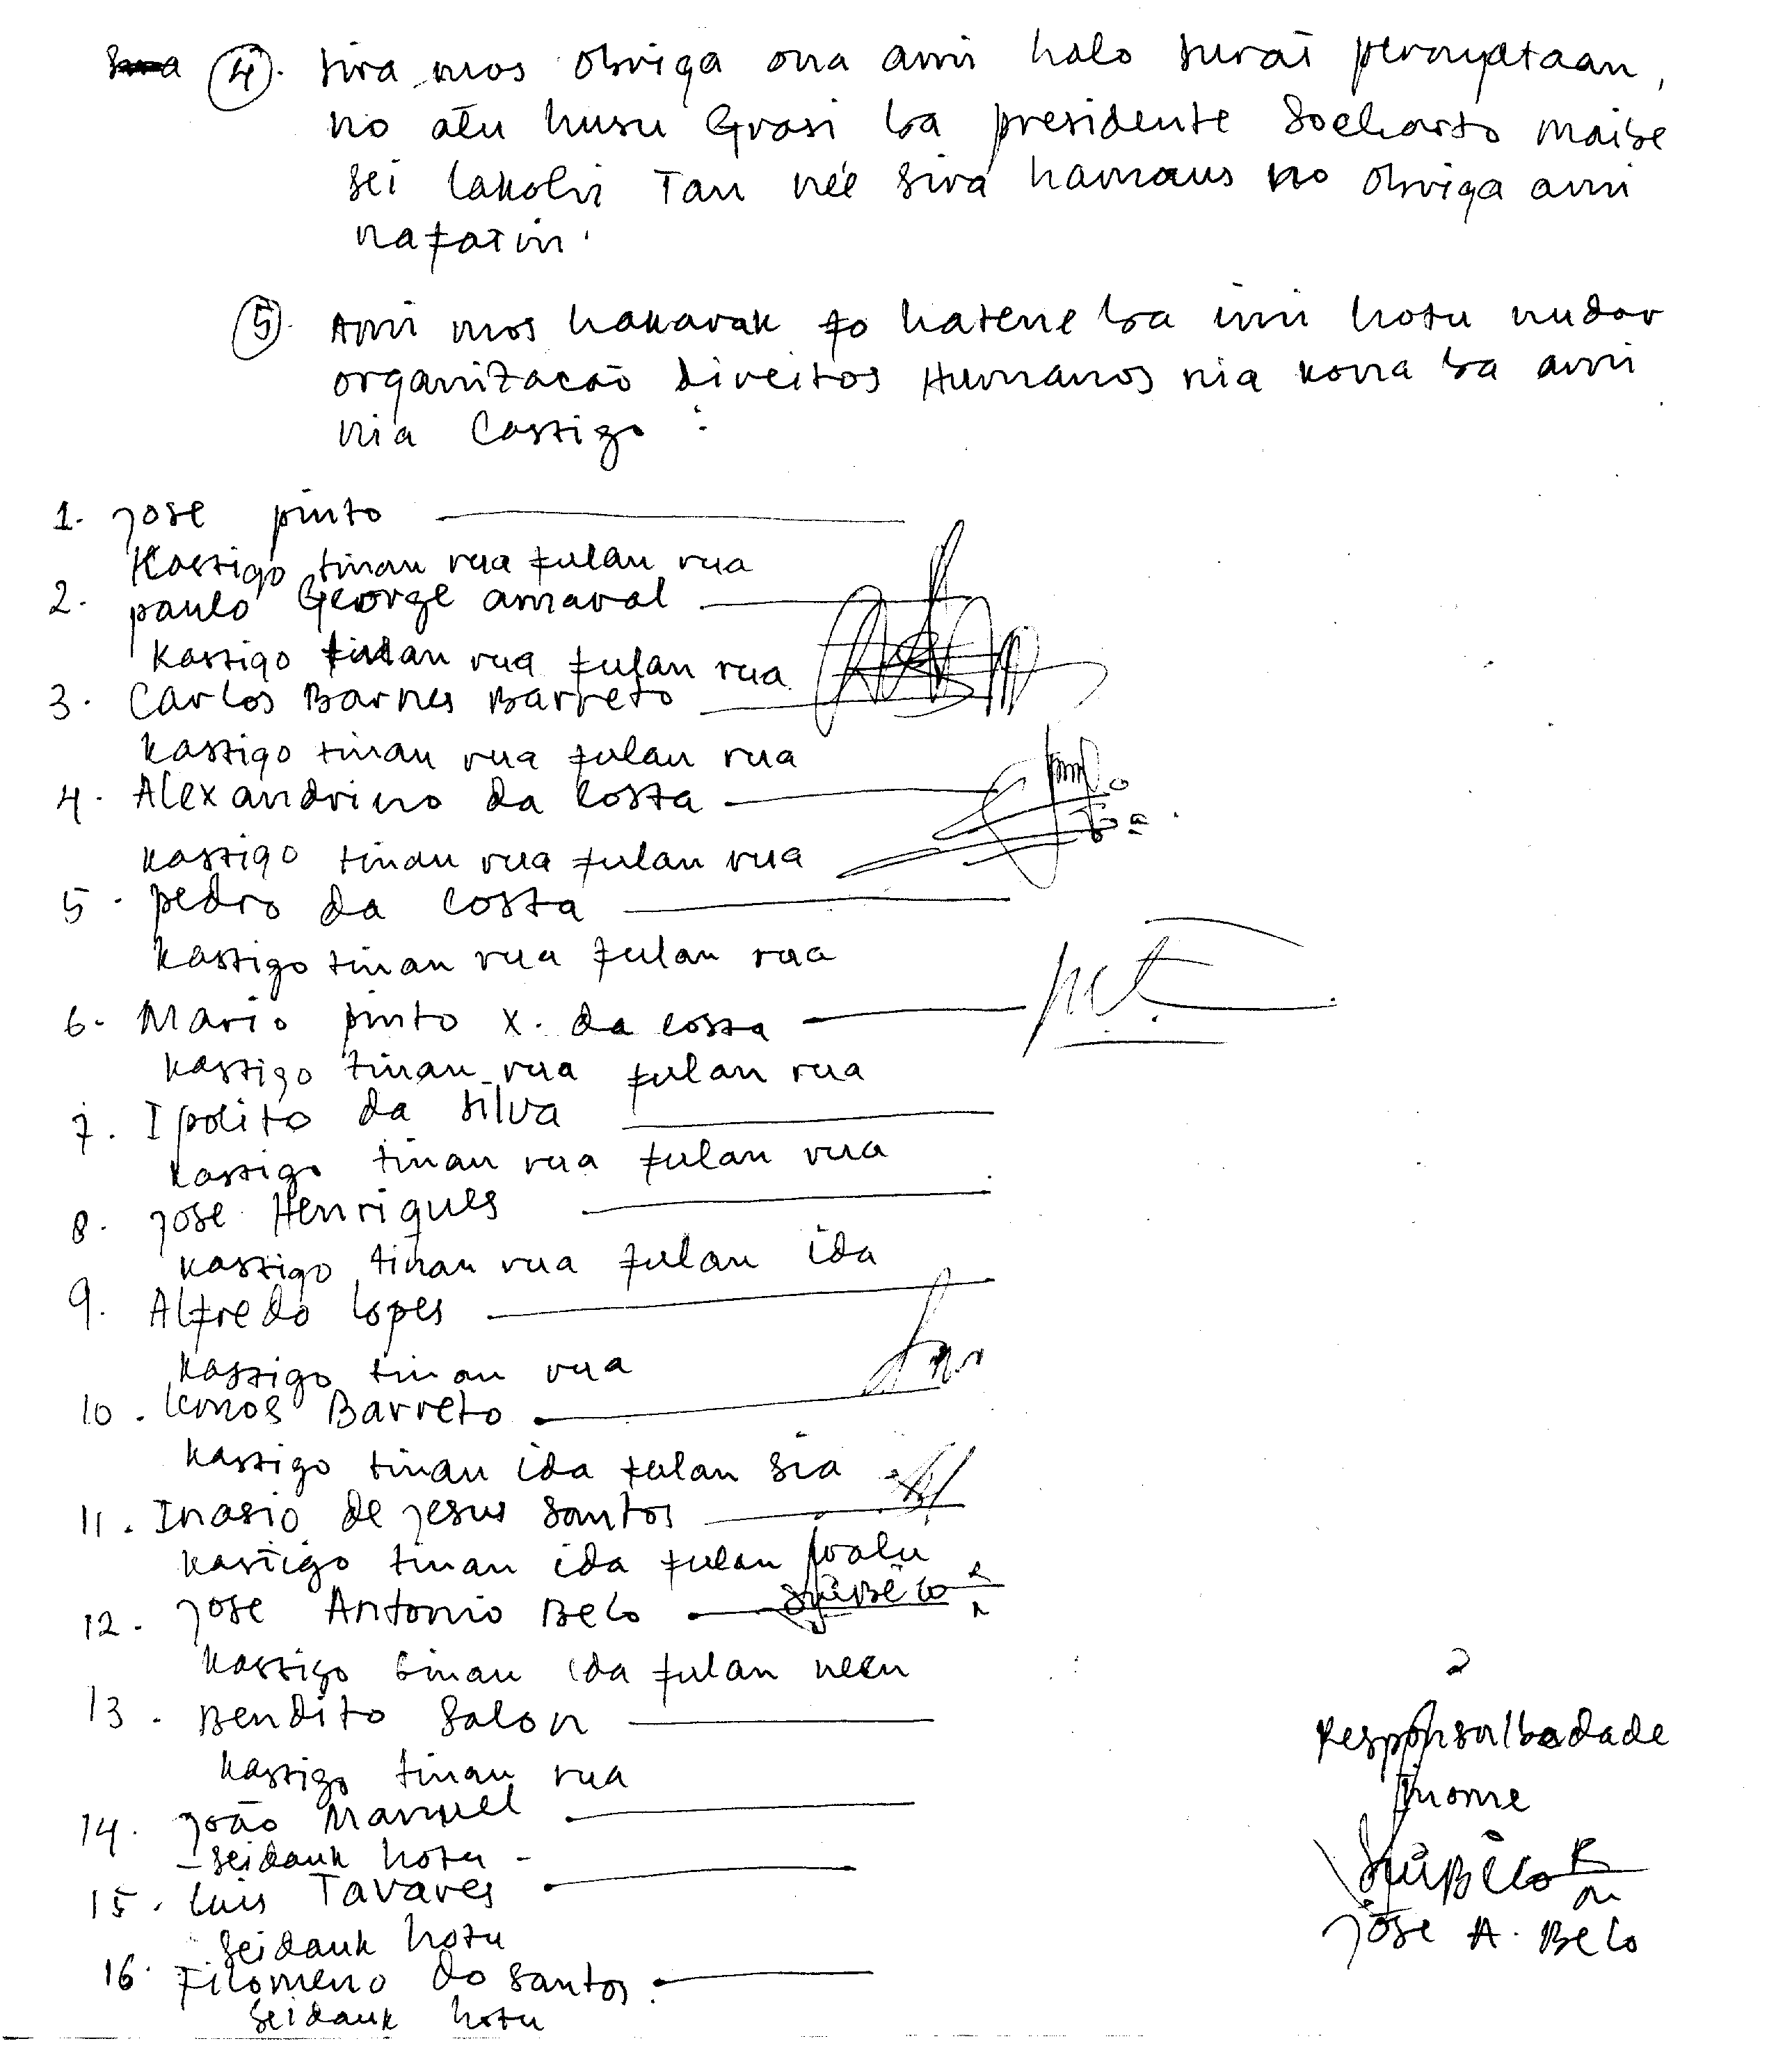 ④. sira mos obriga ona ami halo surat pernyataan,
no atu husu Grasi ba presidente Soeharto maibe
sei lakohi Tan né'e sira hanaus no obriga ami
nafatin.
⑤. Ami mos hakarak fo hatene ba imi hotu nudar
organizacão direitos Humanos nia kona ba ami
nia Castigo :
1. jose pinto
Kastigo tinan rua fulan rua
2. paulo George amaral
kastigo tinan rua fulan rua
3. Carlos Barnes Barreto
kastigo tinan rua fulan rua
4. Alexandrino da costa
kastigo tinan rua fulan rua
5. pedro da costa
kastigo tinan rua fulan rua
6. Mario pinto X. da costa
kastigo tinan rua fulan rua
7. Ipolito da silva
kastigo tinan rua fulan rua
8. jose Henriques
kastigo tinan rua fulan ida
9. Alfredo lopes
kastigo tinan rua
10. Barreto
kastigo tinan ida fulan sia
11. Inasio de jesus santos
kastigo tinan ida fulan walu
12. jose Antonio Belo
kastigo tinan ida fulan neen
13. Bendito Salon
kastigo tinan rua
14. joão Manuel
- seidauk hotu -
15. luis Tavares
seidauk hotu
16. Filomeno do santos.
seidauk hotu
Responsalbadade
jose A. Belo